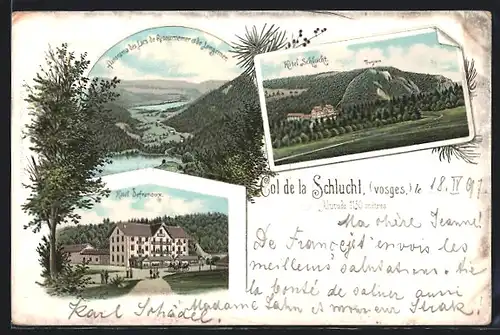 Panorama des Lacs de Retournemer et de Longemer
Hôtel Schlucht.
Hôtel Defranoux.
Col de la Schlucht, (Vosges,) le 18. IV 97.
Altitude 1150 mètres
Ma chère Jeanne!
De Français envois les
meilleurs salutations.
la bonté de saluer aussi
Madame Lahn et monsieur Strak!
Karl Schädel.